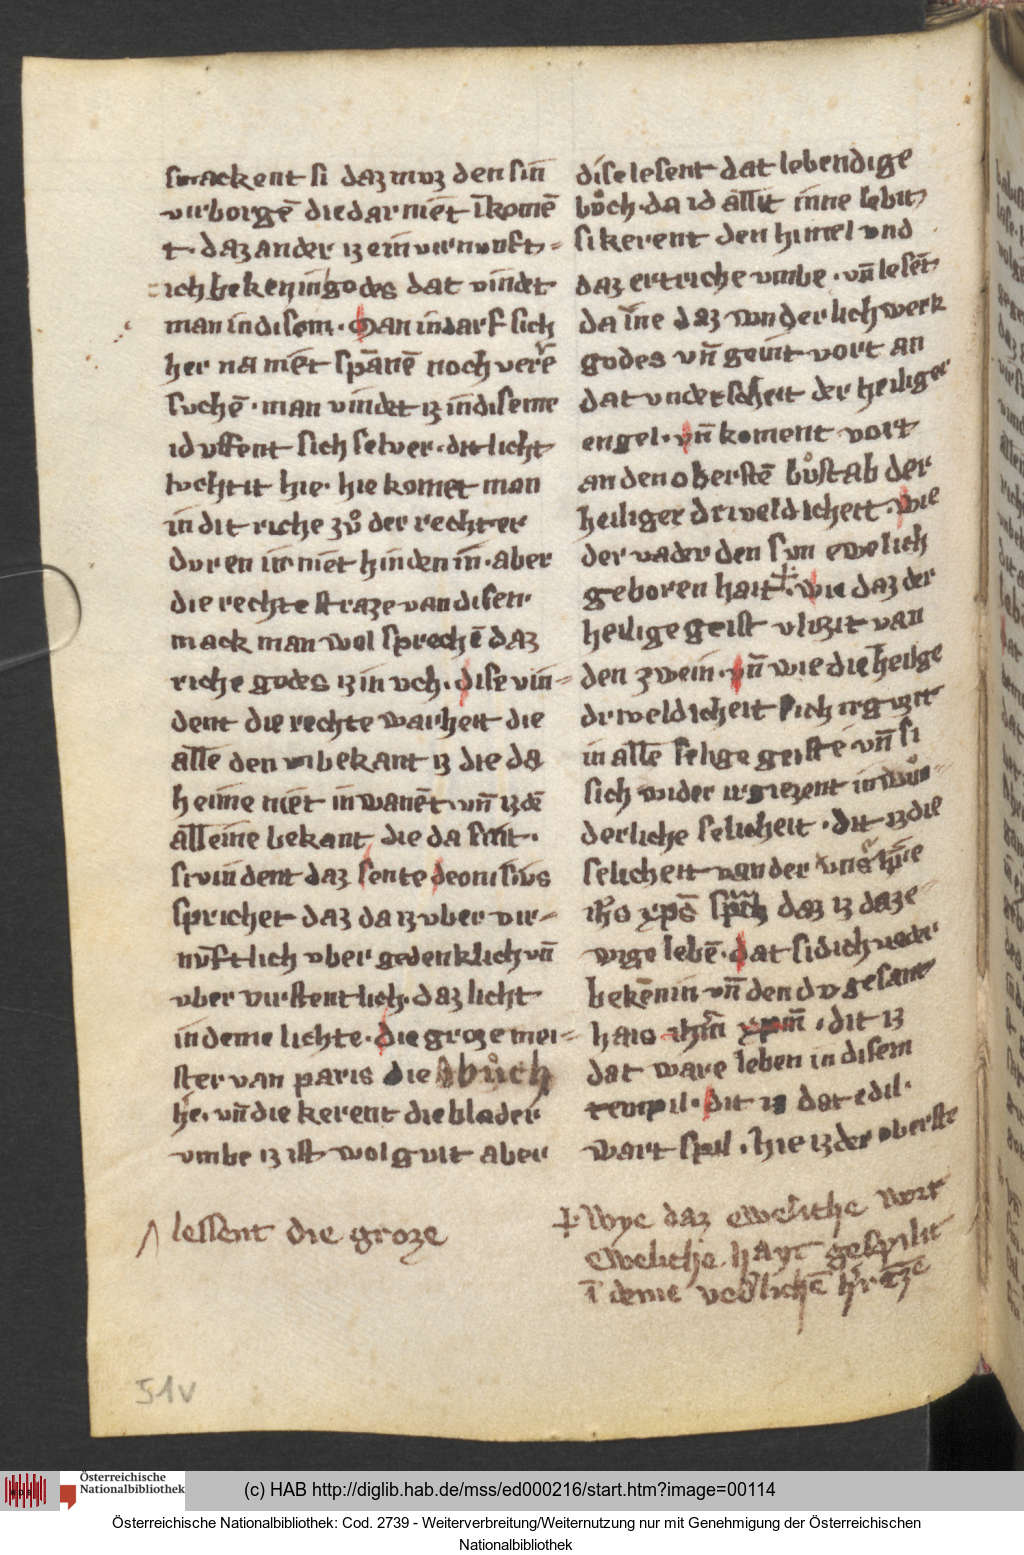 smackent si daz muz den sin̄
virborgē die dar niet īkomē
t · daz ander iz ein virnunft=
ich bekeningodes dat vindet
man in disem · Man indarf sich
her na niet spānē noch verrē
suchē · man vindet iz in diseme
id uffent sich selver · dit licht
luchtit hie · hie komet man
in dit riche zuͦ der rechter
duren in niet hinden in · aber
die rechte straze van disem
mack man wol sprechē daz
riche godes iz in vch · dise vin=
dent die rechte warheit die
alle den vnbekant iz die da
heime niet in wanēt vn̄ izdē
alleine bekant die da sint ·
si vindent daz sente deonisius
sprichet daz da iz vber vir=
nūftlich vber gedenklich vn̄
vber virstentlich · daz licht
in deme lichte · die groze mei=
ster van paris die buͦch
he · vn̄ die kerent die bleder
vmbe iz ist wol guit aber
lessent die groze
dise lesent dat lebendige
buͦch · da id allit inne lebit
si kerent den himel vnd
daz ertriche vmbe · vn̄ lesēt
da īne daz wnderlich werk
godes vn̄ geint vort an
dat vndetscheit der heiliger
engel · vn̄ koment vort
an den oberstē buͦstab der
heiliger driveldicheit · wie
der vader den sun ewelich
geboren hait · wie daz der
heilige geist vluzit van
den zwein · vn̄ wie die heilge
driveldicheit sich irguzit
in alle selige geiste · vn̄ si
sich wider irgiezent in wuͦn=
derliche selicheit · dit iz die
selicheit van der vnsˢ hˢre
ihō xp̄s sprich daz iz daz e=
wige lebē · dat si dich vader
bekēnin vn̄ den du gesant
hais ihm̄ xpm̄ · dit iz
dat ware leben in disem
tempil · dit iz dat edil ·
wart spil · hie iz der oberste
Wye daz ewelithe wort
ewelithe hayt gespilit
ī deme vedˢlichē hˢrtzē
51v
Österreichische
Nationalbibliothek
(c) HAB http://diglib.hab.de/mss/ed000216/start.htm?image=00114
Österreichische Nationalbibliothek: Cod. 2739 - Weiterverbreitung/Weiternutzung nur mit Genehmigung der Österreichischen
Nationalbibliothek